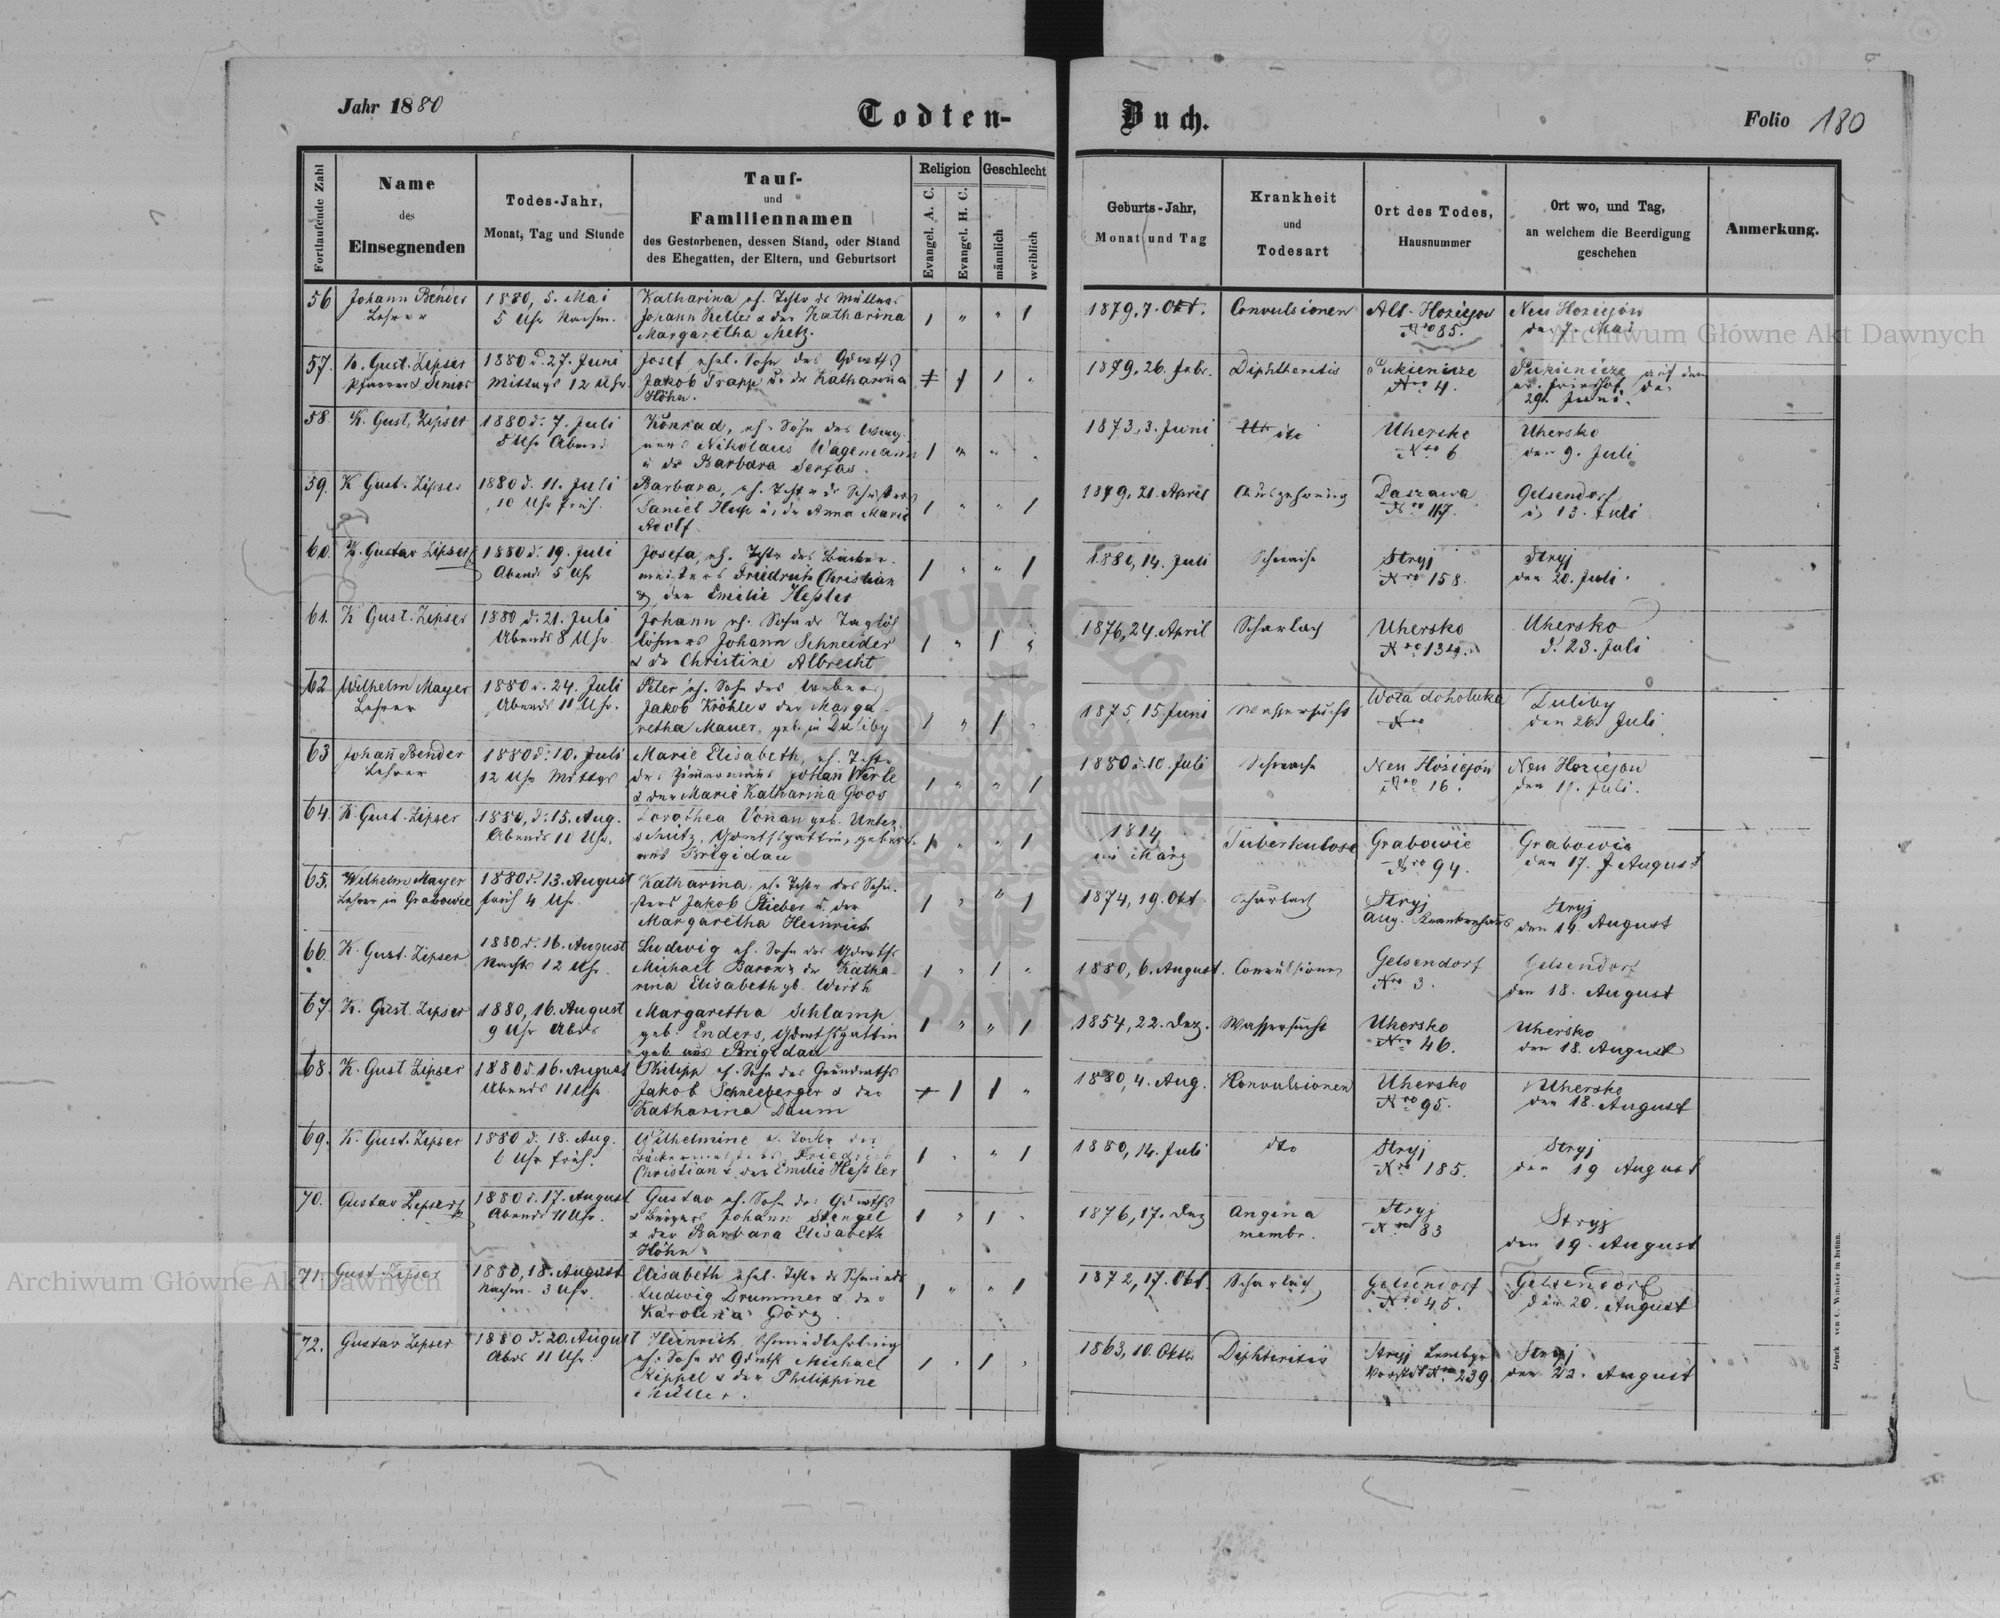 Jahr 1880
Todten-Buch.
Folio 180
Fortlaufende Zahl
Name
des
Einsegnenden
Todes-Jahr,
Monat, Tag und Stunde
Tauf-
und
Familiennamen
des Gestorbenen, dessen Stand, oder Stand
des Ehegatten, der Eltern, und Geburtsort
Religion
Evangel. A. C.
Evangel. H. C.
Geschlecht
männlich
weiblich
Geburts-Jahr,
Monat und Tag
Krankheit
und
Todesart
Ort des Todes,
Hausnummer
Ort wo, und Tag,
an welchem die Beerdigung
geschehen
Anmerkung.
56 Johann Bender
Lehrer
1880, 5. Mai
5 Uhr Nachm.
Katharina eh. Tchtr ds Müllers
Johann Keller & der Katharina
Margaretha Metz.
1 " " 1
1879, 7. Okt.
Convulsionen
Alt-Hoziejow
Nro 85.
Neu Hoziejow
den 7. Mai
57. Gust. Zipser
Pfarrer & Senior
1880 d. 27. Juni
Mittags 12 Uhr.
Josef ehel. Sohn des Gdwrths
Jakob Trapp u. dr Katharina
Höhn.
1 1 "
1879, 26. Febr.
Diphtheritis
Pukienicze
Nro 4.
Pukienicze auf dem
ev. Friedhof den
29. Juni.
58. K. Gust. Zipser
1880 d. 7. Juli
5 Uhr Abends
Konrad, eh. Sohn des Wag-
ners Nikolaus Wagemann
u dr Barbara Serfas.
1 " "
1873, 3. Juni
Uhersko
Nro 6
Uhersko
den 9. Juli
59. K Gust. Zipser
1880 d. 11. Juli
10 Uhr früh.
Barbara, eh. Tchtr ds Schusters
Daniel u. dr Anna Maria
Adolf
1 " " 1
1879, 21. April
Auszehrung
Daszawa
Nro 117.
Gelsendorf
13. Juli
60. K. Gustav Zipser
1880 d. 19. Juli
Abends 5 Uhr
Josefa, eh. Tchtr des Bäcker-
meisters Friedrich Christian
& der Emilie Hessler
1 " " 1
1880, 14. Juli
Schwäche
Stryj
Nro 158.
Stryj
den 20. Juli.
61. K Gust. Zipser
1880 d. 21. Juli
Abends 8 Uhr.
Johann eh. Sohn ds Taglöh
löhners Johann Schneider
& dr Christine Albrecht
1 " 1 "
1876, 24. April
Scharlach
Uhersko
Uhersko
d. 23. Juli
62 Wilhelm Mayer
Lehrer
1880 d. 24. Juli
Abends 11 Uhr.
Peter eh. Sohn des Webers
Jakob Kröhle & der Marga-
retha Mauer, geb. in Duliby
1 " 1 "
1875, 15. Juni
Wassersucht
Wola doholuka
Nro
Duliby
den 26. Juli
63 Johañ Bender
Lehrer
1880 d. 10. Juli
12 Uhr Mittgs
Marie Elisabeth, eh. Tchtr
des Zimmermans Johañ Werle
& der Marie Katharina Goos
1 " " 1
1880 d. 10. Juli
Schwäche
Neu Hoziejow
Nro 16.
Neu Hoziejow
den 11. Juli.
64. K. Gust. Zipser
1880, d. 15. Aug.
Abends 10 Uhr.
Dorothea Vonau geb. Unter
schütz, Gdwrthsgattin, gebürt.
aus Brigidau
1 " " 1
1814
im März
Tuberkulose
Grabowie
Nro 94.
Grabowie
den 17. August
65. Wilhelm Mayer
Lehrer in Grabowie
1880 d. 13. August
früh 4 Uhr.
Katharina, eh. Tchtr des Schu-
sters Jakob Stieber u. der
Margaretha Heinrich
1 " " 1
1874, 19. Okt
Scharlach
Stryj
Allg. Krankenhaus
Stryj
den 14 August
66. K. Gust. Zipser
1880 d. 16. August
Nachts 12 Uhr.
Ludwig eh. Sohn des Gdwrths
Michael Baron & der Katha-
rina Elisabeth gb. Werth
1 " 1 "
1880, 6. August.
Convulsionen
Gelsendorf
Nro 3.
Gelsendorf
den 18. August
67. K. Gust. Zipser
1880, 16. August
9 Uhr Abds
Margaretha Schlamp
geb. Enders, Gdwrthsgattin
geb. aus Brigidau
1 " " 1
1854, 22. Dez.
Wassersucht
Uhersko
Nro 46.
Uhersko
den 18. August
68. K. Gust Zipser
1880 d. 16. August
Abends 11 Uhr
Philipp eh. Sohn des Grundwrths
Jakob Schneeberger & der
Katharina Daum
1 1 "
1880, 4. Aug.
Konvulsionen
Uhersko
Nro 95.
Uhersko
den 18. August
69. K. Gust. Zipser
1880 d. 18. Aug.
6 Uhr früh.
Wilhelmine e. Tochtr des
Bäckermeisters Friedrich
Christian & der Emilie Hessler
1 " " 1
1880, 14. Juli
dto
Stryj
Nro 185.
Stryj
den 19 August
70. Gustav Zipser
1880 d. 17. August
Abends 11 Uhr.
Gustav eh. Sohn des Gdwrths
& Bürgers Johann Stengel
& der Barbara Elisabeth
Höhn
1 " 1 "
1876, 17. Dez
Angina
membr.
Stryj
Nro 83
Stryj
den 19. August
71. Gust Zipser
1880, 18. August
Nachm. 3 Uhr.
Elisabeth ehel. Tchtr ds Schmieds
Ludwig Drummer & der
Karolina Görz
1 " " 1
1872, 17. Okt.
Scharlach
Gelsendorf
Nro 45.
Gelsendorf
den 20. August
72. Gustav Zipser
1880 d. 20. August
Abds 11 Uhr.
Heinrich, Schmiedlehrling
eh. Sohn ds Gdwths Michael
Keppel & der Philippine
Müller.
1 " 1 "
1863, 10. Oktb.
Diphteritis
Stryj Lembgr
Vorstdt Nro 239
Stryj
den 22. August
Druck von C. Winiker in Brünn.
Archiwum Główne Akt Dawnych
Archiwum Główne Akt Dawnych
ARCHIWUM GŁÓWNE AKT DAWNYCH